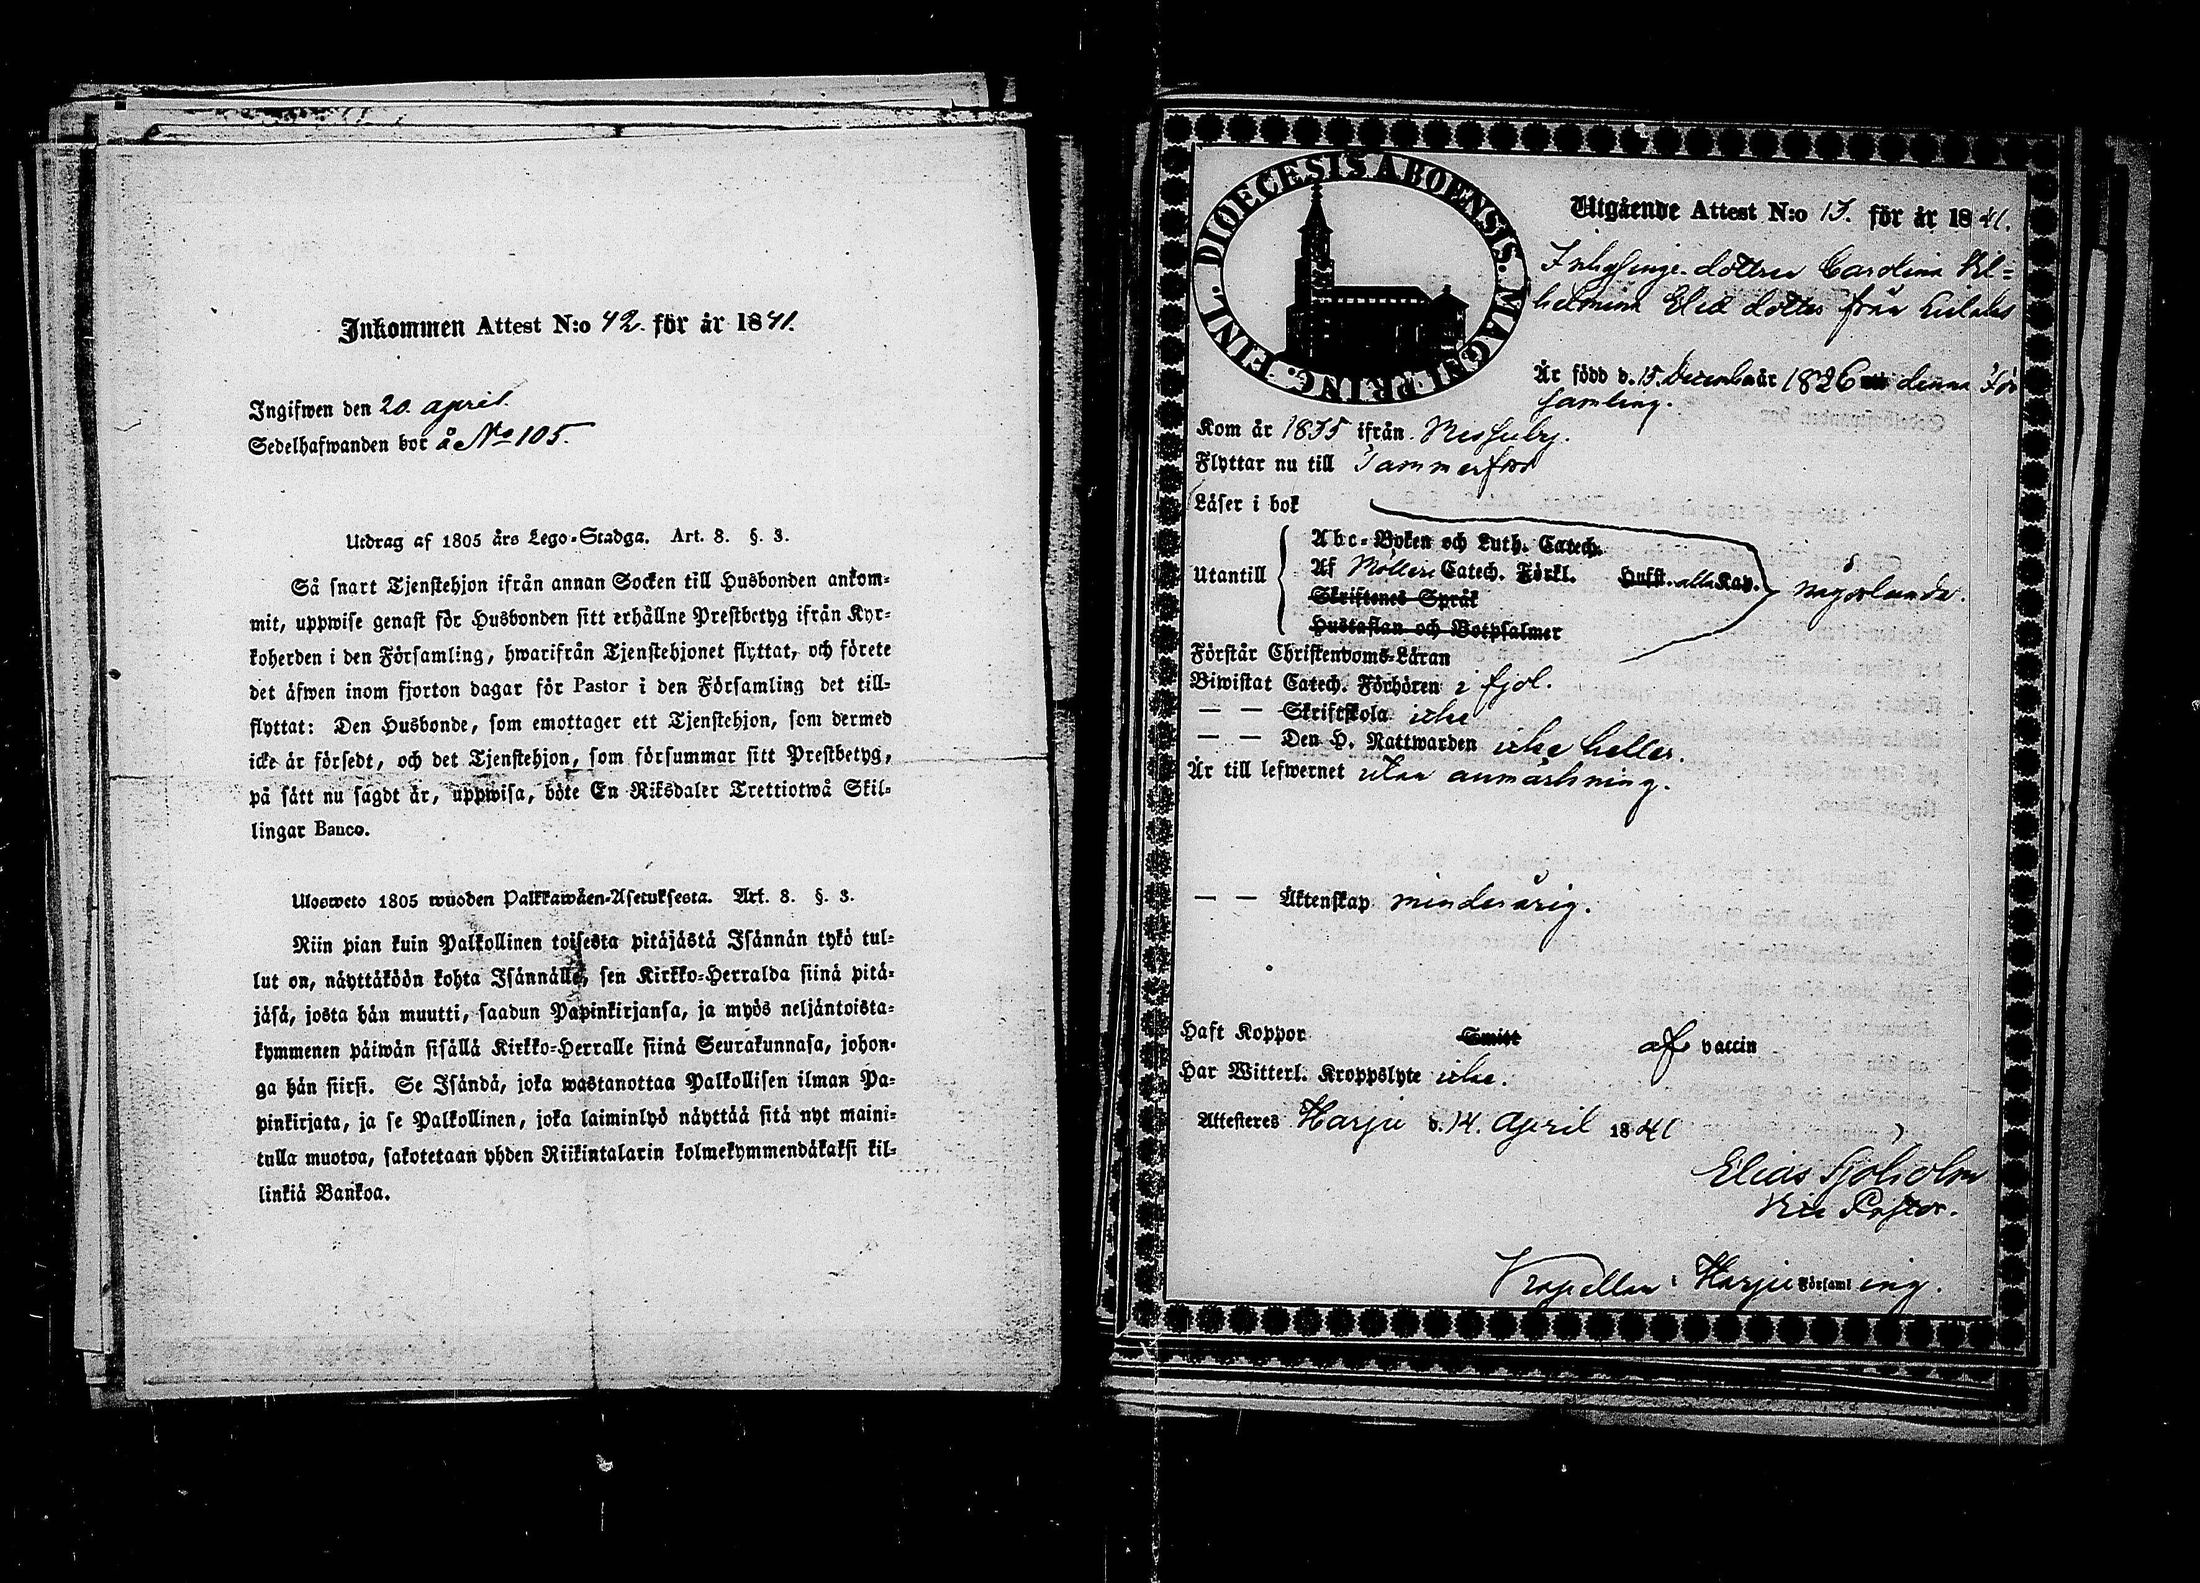 Inkommen Attest N:o 42. för år 1841.
Ingifwen den 20. april.
Sedelhafwanden bor å No 105.
Utdrag af 1805 års Lego-Stadga. Art. 8. §. 3.
Så snart Tjenstehjon ifrån annan Socken till Husbonden ankom-
mit, uppwise genast för Husbonden sitt erhållne Prestbetyg ifrån Kyr-
koherden i den Församling, hwarifrån Tjenstehjonet flyttat, och förete
det äfwen inom fjorton dagar för Pastor i den Församling det till-
flyttat: Den Husbonde, som emottager ett Tjenstehjon, som dermed
icke är försedt, och det Tjenstehjon, som försummar sitt Prestbetyg,
på sätt nu sagdt är, uppwisa, böte En Riksdaler Trettiotwå Skil-
lingar Banco.
Ulosweto 1805 wuoden Palkkawäen-Asetuksesta. Art. 8. §. 3.
Niin pian kuin Palkollinen toisesta pitäjästä Isännän tykö tul-
lut on, näyttäköön kohta Isännälle, sen Kirkko-Herralda siinä pitä-
jäsä, josta hän muutti, saadun Papinkirjansa, ja myös neljäntoista-
kymmenen päiwän sisällä Kirkko-Herralle siinä Seurakunnasa, johon-
ga hän siirsi. Se Isändä, joka wastanottaa Palkollisen ilman Pa-
pinkirjata, ja se Palkollinen, joka laiminlyö näyttää sitä nyt maini-
tulla muotoa, sakotetaan yhden Riikintalarin kolmekymmendäkaksi kil-
linkiä Bankoa.
DIOECESIS ABOENSIS. MAGNI PRINC. FINL.
Utgående Attest N:o 13. för år 1841.
Inhysinge-dottren Carolina Vil=
helmina Elias dotter från
Är född d. 15. December år 1826 denna För
samling.
Kom år 1835 ifrån Messuby.
Flyttar nu till Tammerfors
Läser i bok
Abc-Boken och Luth. Catech.
Utantill Af Möllers Catech. Förkl. Hufst. alla Kap. någorlunda.
Skriftenes Språk
Hustaflan och Botpsalmer
Förstår Christendoms-Läran
Biwistat Catech. Förhören i fjol.
— — Skriftskola icke
— — Den H. Nattwarden icke heller.
Är till lefwernet utan anmärkning.
— — Äktenskap minderårig.
Haft Koppor Smitt af vaccin
Har Witterl. Kroppslyte icke.
Attesteres Harju d. 14. April 1841
Elias Sjöholm
Vice Pastor.
Kapellan i Harju Församling.